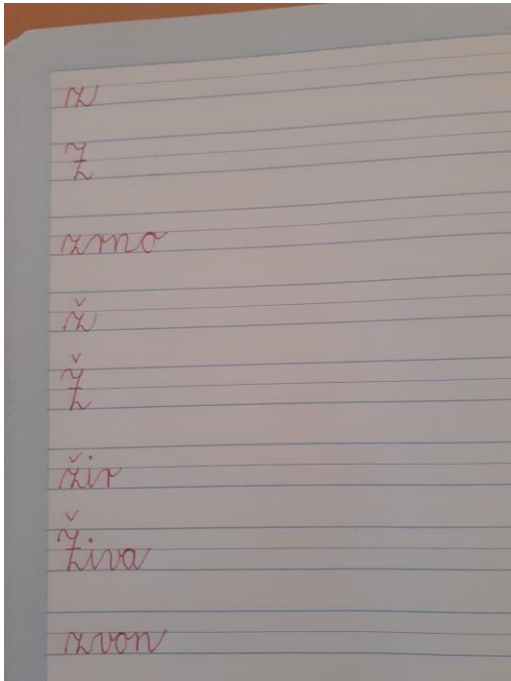 z
Z
zrno
ž
Ž
žir
Živa
zvon